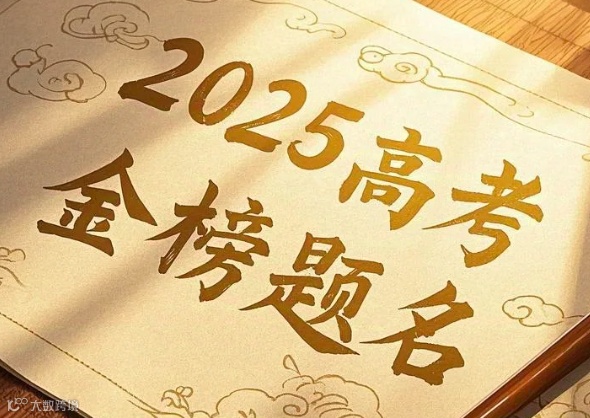 2025高考
金榜题名
大数跨境